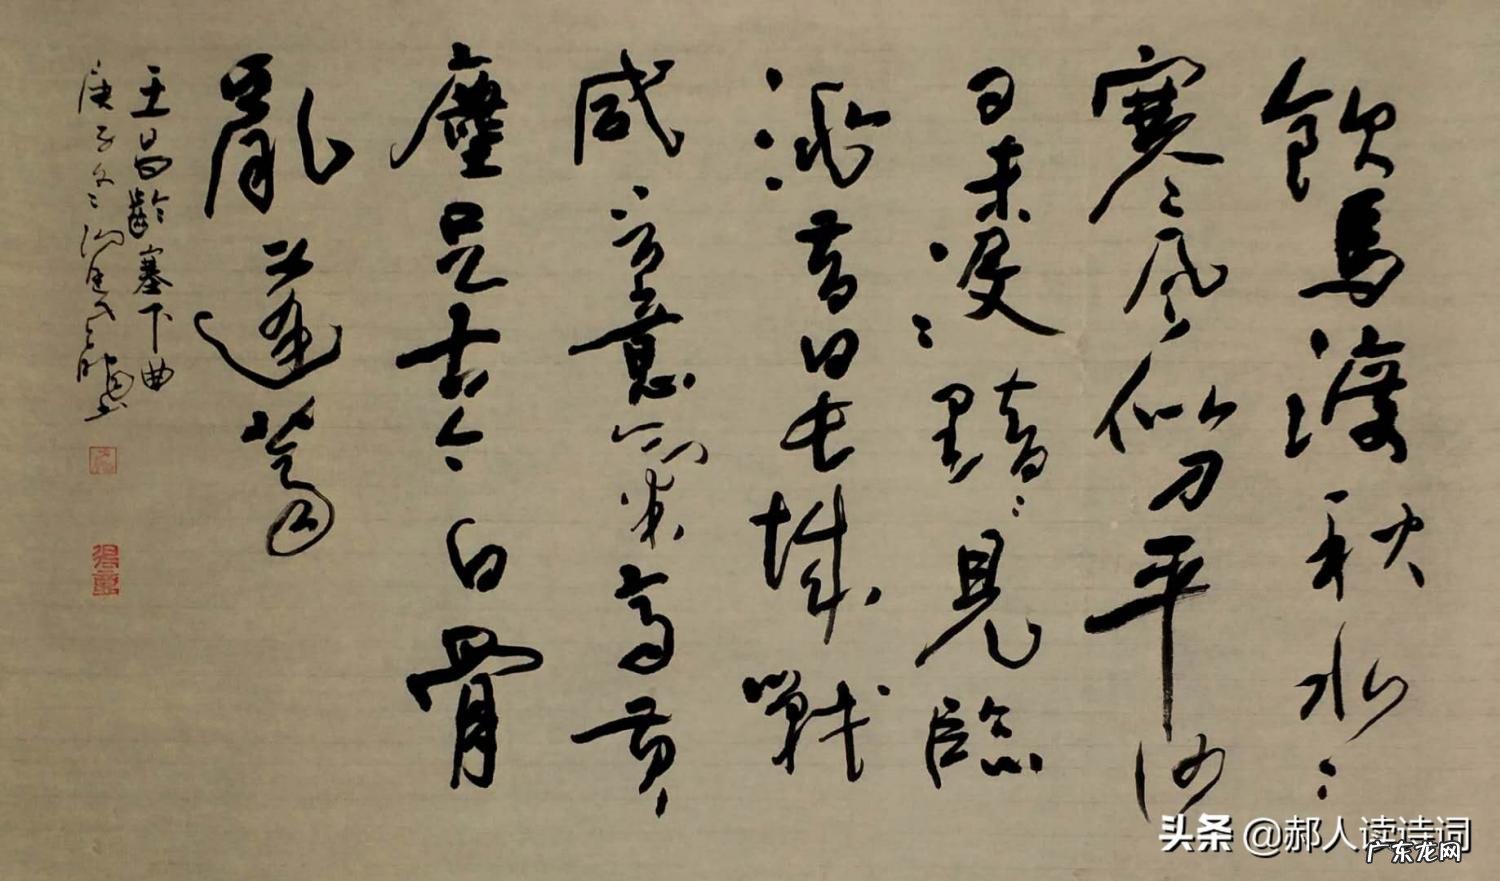 飲馬渡秋水〻
寒風似刀平沙
日未没黯〻見臨
洮昔日長城戰
咸言意氣高黄
塵足古今白骨
亂蓬蒿
王昌齡塞下曲
庚子冬
头条 @郝人读诗词
广东龙网